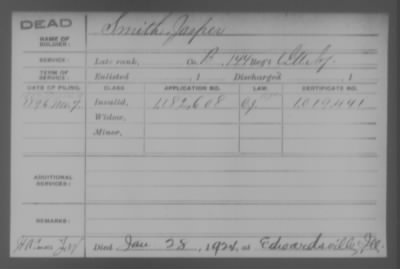 DEAD
NAME OF SOLDIER: Smith, Jasper
SERVICE: Late rank, Co. B, 144 Reg't Ills. Inf.
TERM OF SERVICE: Enlisted , 1 Discharged , 1
DATE OF FILING. CLASS APPLICATION NO. LAW. CERTIFICATE NO.
Invalid, 1,182,608 1,019,441
Widow,
Minor,
ADDITIONAL SERVICES:
REMARKS:
Died Jan 28, 1924, at Edwardsville, Ill.